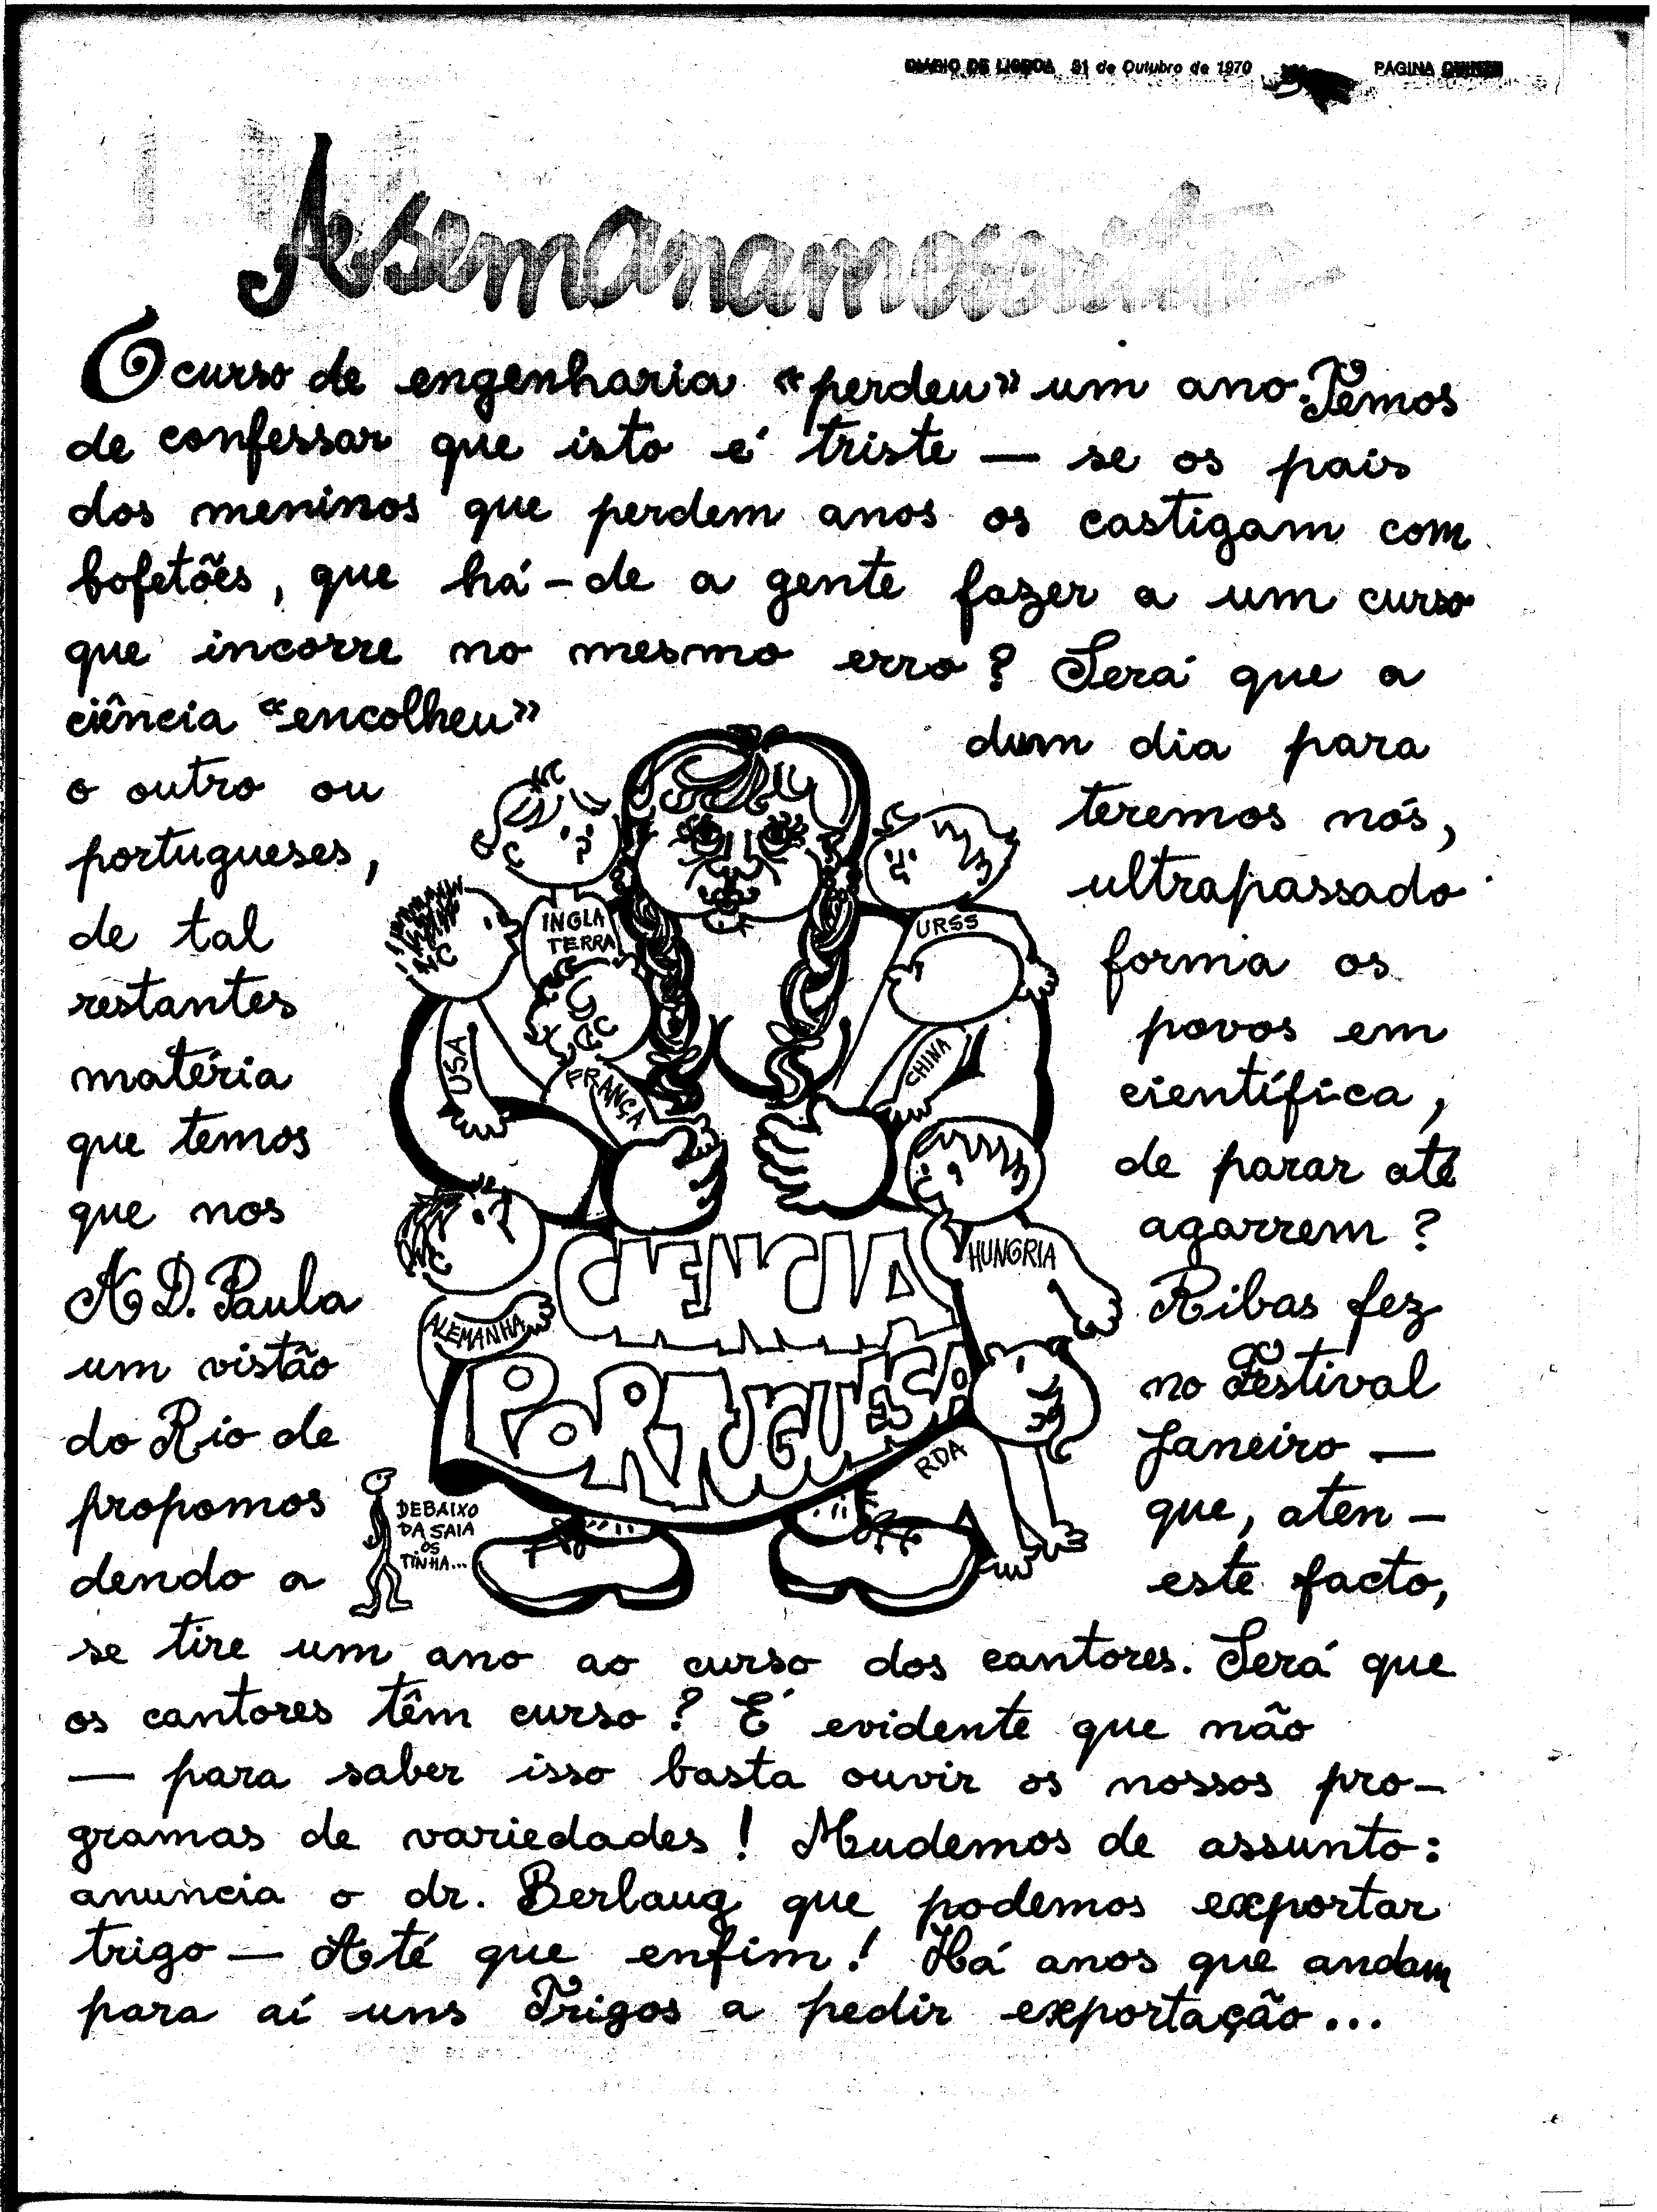 DIÁRIO DE LISBOA 31 de Outubro de 1970 PÁGINA
A semana
O curso de engenharia «perdeu» um ano. Temos
de confessar que isto é triste — se os pais
dos meninos que perdem anos os castigam com
bofetões, que há-de a gente fazer a um curso
que incorre no mesmo erro? Será que a
ciência «encolheu» dum dia para
o outro ou teremos nós,
portugueses, ultrapassado
de tal forma os
restantes povos em
matéria científica,
que temos de parar até
que nos agarrem?
A D. Paula Ribas fez
um vistão no Festival
do Rio de Janeiro —
propomos que, aten-
dendo a este facto,
se tire um ano ao curso dos cantores. Será que
os cantores têm curso? É evidente que não
— para saber isso basta ouvir os nossos pro-
gramas de variedades! Mudemos de assunto:
anuncia o dr. Berlaug que podemos exportar
trigo — Até que enfim! Há anos que andam
para aí uns Trigos a pedir exportação...
INGLA
TERRA
URSS
USA
FRANÇA
CHINA
ALEMANHA
HUNGRIA
CIENCIA
PORTUGUESA
RDA
DEBAIXO
DA SAIA
OS
TINHA...